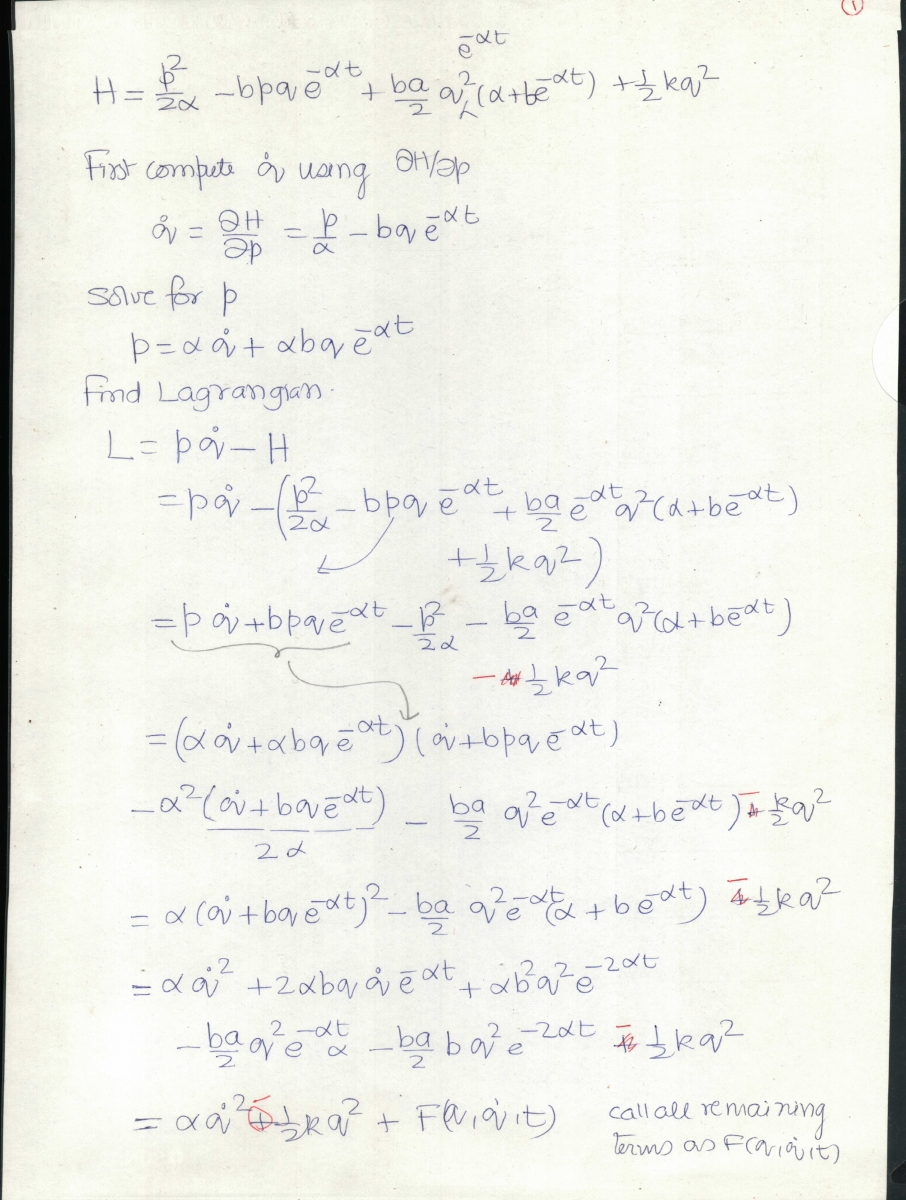 ①
e^{-αt}
H = p²/2α − bpq e^{-αt} + ba/2 q² (α + be^{-αt}) + ½ kq²
First compute q̇ using ∂H/∂p
q̇ = ∂H/∂p = p/α − bq e^{-αt}
solve for p
p = α q̇ + αbq e^{-αt}
Find Lagrangian.
L = p q̇ − H
= p q̇ − (p²/2α − bpq e^{-αt} + ba/2 e^{-αt} q² (α + be^{-αt})
+ ½ kq²)
= p q̇ + bpq e^{-αt} − p²/2α − ba/2 e^{-αt} q² (α + be^{-αt})
− ½ kq²
= (α q̇ + αbq e^{-αt}) (q̇ + bpq e^{-αt})
− α² (q̇ + bq e^{-αt})/2α − ba/2 q² e^{-αt} (α + be^{-αt}) − k/2 q²
= α (q̇ + bq e^{-αt})² − ba/2 q² e^{-αt} (α + be^{-αt}) − ½ kq²
= α q̇² + 2αbq q̇ e^{-αt} + αb²q² e^{-2αt}
− ba/2 q² e^{-αt} α − ba/2 b q² e^{-2αt} − ½ kq²
= α q̇² − ½ kq² + F(q, q̇, t) call all remaining
terms as F(q, q̇, t)